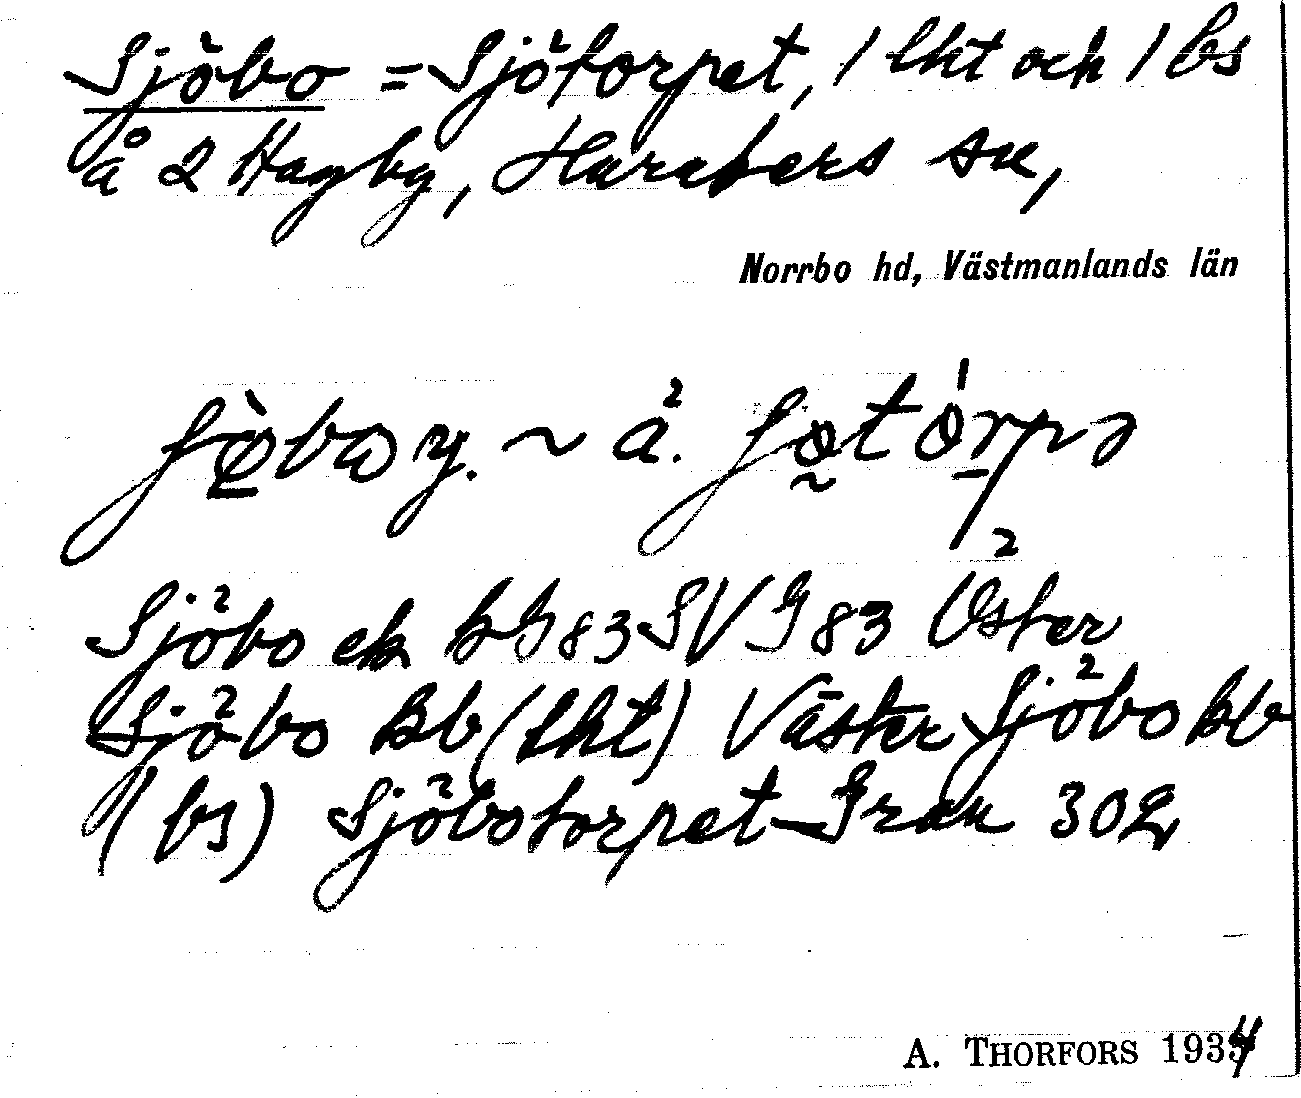 Sjöbo = Sjötorpet, 1 lht och 1 bs
å 2 Hagby, Haraker sn,
Norrbo hd, Västmanlands län
~ å.
Sjöbo ek kbG 83 SVG 83 Öster
Sjöbo Bb (lht) Väster Sjöbo bb
(bs) Sjöbotorpet Grau 302
A. THORFORS 1934